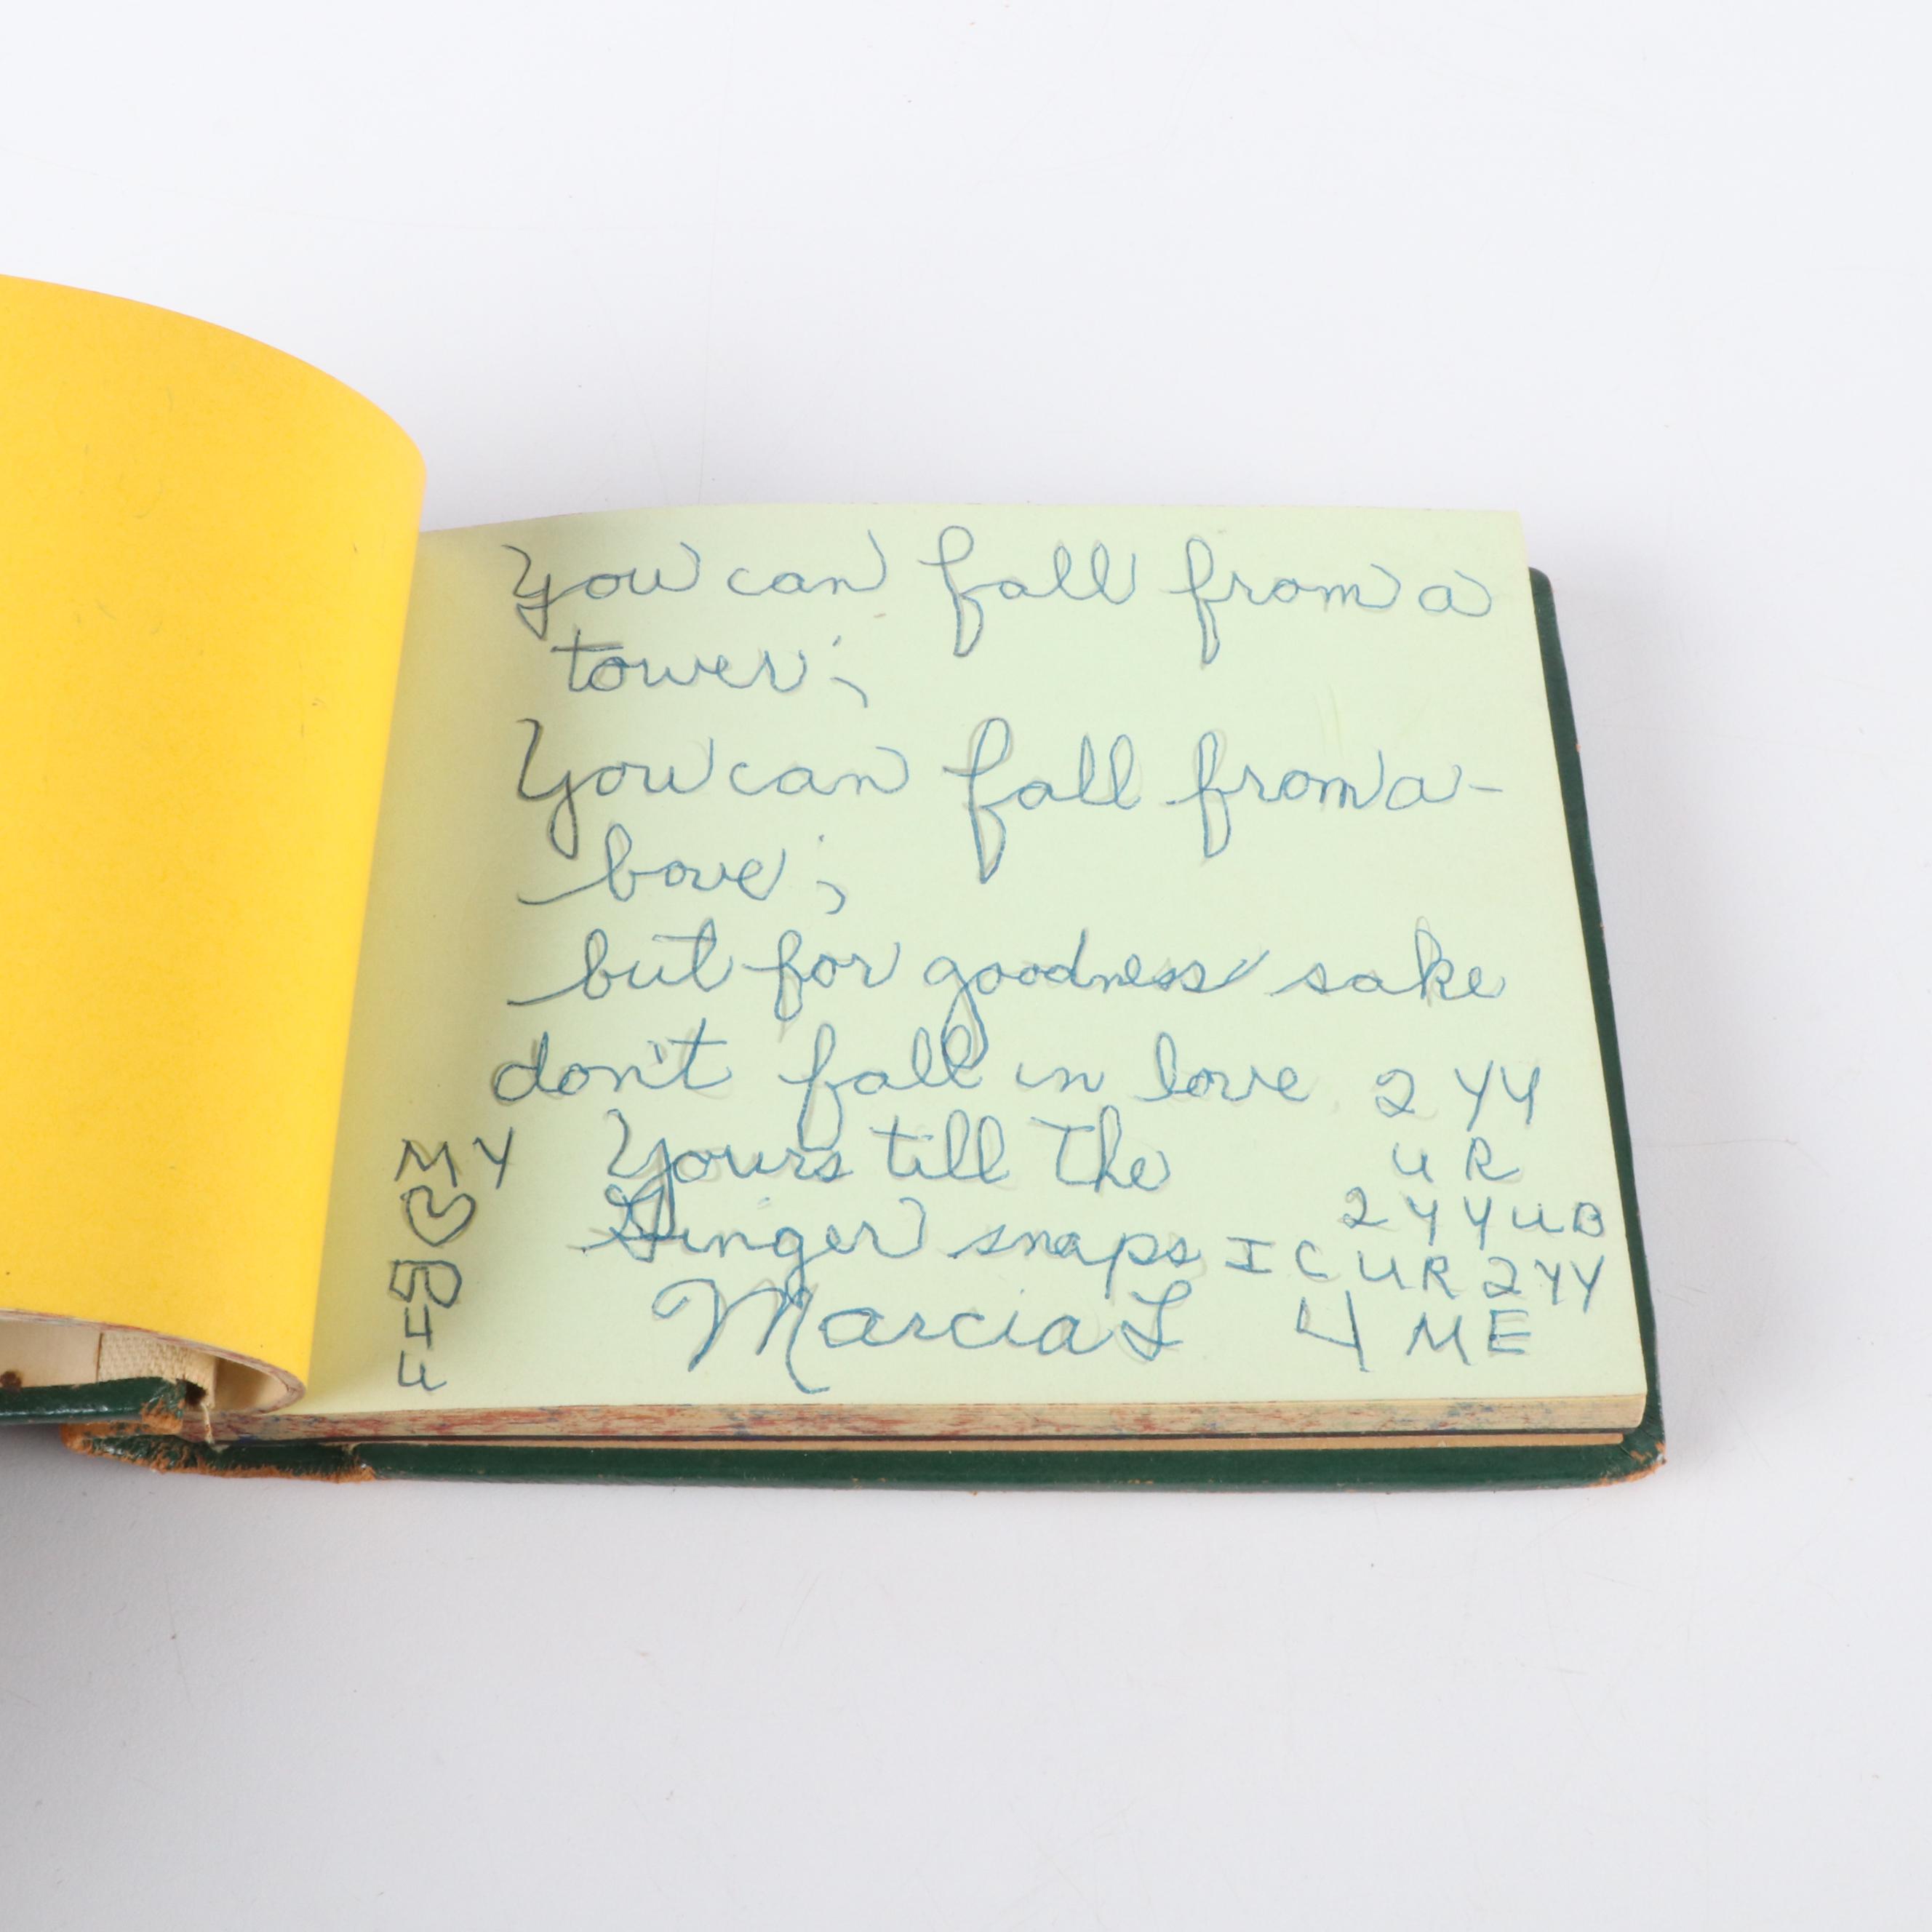 You can fall from a
tower;
You can fall from a-
bove;
but for goodness sake
don't fall in love
Yours till the
Ginger snaps
Marcia L
2 Y Y
U R
2 Y Y U B
I C U R 2 Y Y
4 M E
M Y